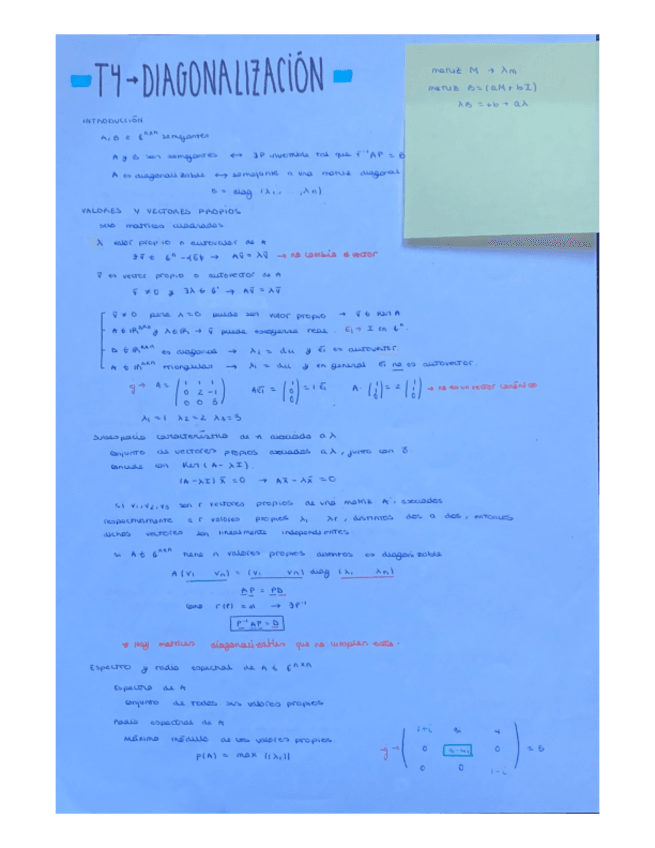 T4→DIAGONALIZACIÓN
matriz M → λm
matriz B=(aM+bI)
λB = b + aλ
INTRODUCCIÓN
A, B ∈ ℂⁿˣⁿ semejantes
A y B son semejantes ↔ ∃P inversible tal que P⁻¹AP = B
A es diagonalizable ↔ semejante a una matriz diagonal
D = diag (λ₁, ..., λn)
VALORES Y VECTORES PROPIOS
solo matrices cuadradas
λ valor propio o autovalor de A
∃v̄ ∈ ℂⁿ → Av̄ = λv̄ → no cambia el vector
v̄ es vector propio o autovector de A
v̄ ≠ 0 y ∃λ ∈ ℂ → Av̄ = λv̄
v̄ ≠ 0 para λ=0 puede ser valor propio → v̄ ∈ Ker A
A ∈ ℝⁿˣⁿ y λ∈ℝ → v̄ puede escogerse real.
es diagonal → λi = dii y ēi es autovector.
A ∈ ℝⁿˣⁿ triangular → λi = dii y en general ēi no es autovector.
ej→ A = (1 1 1
0 2 -1
0 0 3) Aē₁ = (1 0 0) = 1ē₁ A·(1 1 0) = 2(1 1 0) → no es un vector canónico
λ₁=1 λ₂=2 λ₃=3
Subespacio característico de A asociado a λ
conjunto de vectores propios asociados a λ, junto con 0̄
coincide con Ker (A-λI).
(A-λI) x̄ = 0 → Ax̄ - λx̄ = 0
si v₁, v₂, v₃ son r vectores propios de una matriz A, asociados
respectivamente a r valores propios λ₁ λr, distintos dos a dos, entonces
dichos vectores son linealmente independientes
si A ∈ ℂⁿˣⁿ tiene n valores propios distintos es diagonalizable
A(v₁ vn) = (v₁ vn) diag (λ₁ λn)
AP = PD
como r(P) = n → ∃P⁻¹
P⁻¹AP = D
* Hay matrices diagonalizables que no cumplen esto.
Espectro y radio espectral de A ∈ ℂⁿˣⁿ
Espectro de A
conjunto de todos sus valores propios
Radio espectral de A
Máximo módulo de los valores propios
ρ(A) = max {|λi|}
ej→ (1+i 5 4
0 3-4i 0
0 0 1-i) = 5